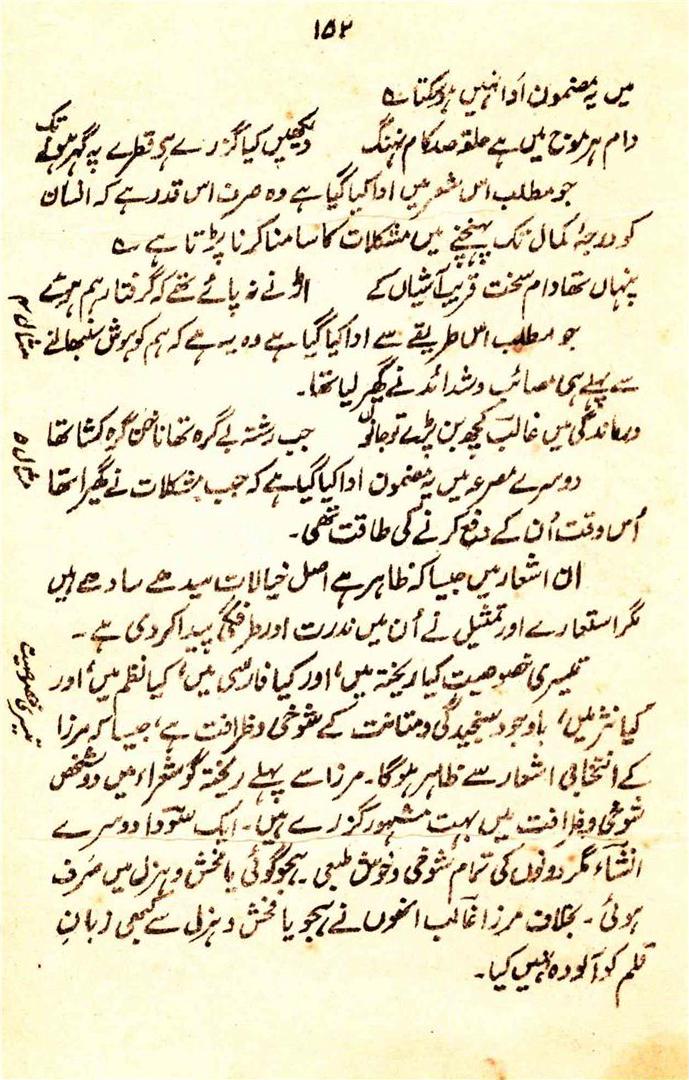 ۱۵۲
میں یہ مضمون ادا نہیں ہوسکتا ؎
دام ہر موج میں ہے حلقۂ صد کام نہنگ دیکھیں کیا گزرے ہے قطرے پہ گہر ہونے تک
جو مطلب اس شعر میں ادا کیا گیا ہے وہ صرف اس قدر ہے کہ انسان
کو درجۂ کمال تک پہنچنے میں مشکلات کا سامنا کرنا پڑتا ہے ؎
پنہاں تھا دام سخت قریب آشیاں کے اڑنے نہ پائے تھے کہ گرفتار ہم ہوئے
مثال ۴
جو مطلب اس طریقے سے ادا کیا گیا ہے وہ یہ ہے کہ ہم کو ہوش سنبھالنے
سے پہلے ہی مصائب و شدائد نے گھیر لیا تھا۔
درماندگی میں غالب کچھ بن پڑے تو جانوں جب رشتہ بے گرہ تھا ناخن گرہ کشا تھا
مثال ۵
دوسرے مصرعہ میں یہ مضمون ادا کیا گیا ہے کہ جب مشکلات نے گھیرا تھا
اُس وقت اُن کے دفع کرنے کی طاقت تھی۔
ان اشعار میں جیسا کہ ظاہر ہے اصل خیالات سیدھے سادھے ہیں
مگر استعارے اور تمثیل نے اُن میں ندرت اور طرفگی پیدا کردی ہے۔
تیسری خصوصیت
تیسری خصوصیت کیا ریختہ میں، اور کیا فارسی میں، کیا نظم میں، اور
کیا نثر میں، باوجود سنجیدگی و متانت کے شوخی و ظرافت ہے، جیسا کہ مرزا
کے انتخابی اشعار سے ظاہر ہوگا۔ مرزا سے پہلے ریختہ گو شعراء میں دو شخص
شوخی و ظرافت میں بہت مشہور گزرے ہیں۔ ایک سودا دوسرے
انشاء مگر دونوں کی تمام شوخی و خوش طبعی۔ ہجو گوئی یا فحش و ہزل میں صَرف
ہوئی۔ بخلاف مرزا غالب انھوں نے ہجو یا فحش و ہزل سے کبھی زبانِ
قلم کو آلودہ نہیں کیا۔